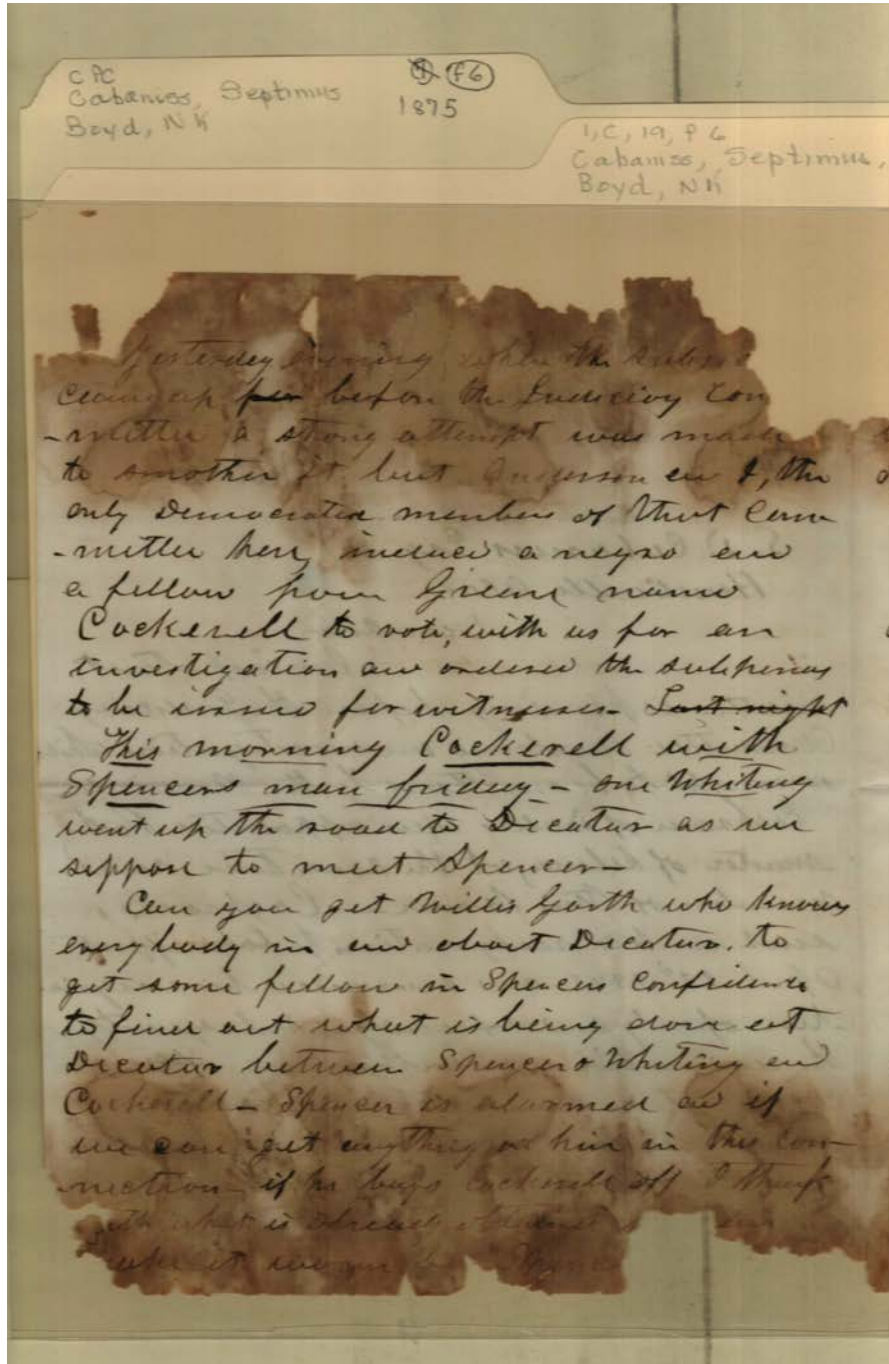 CPC
Cabaniss, Septimus
Boyd, NK
F6
1875
1, C, 19, F 6
Cabaniss, Septimus,
Boyd, NK
Yesterday evening when the
came up for before the Judiciary Com
-mittee a strong attempt was made
to smother it but Anderson an I, the
only Democratic members of that Com
-mittee here induced a negro an
a fellow from Greene name
Cockerell to vote, with us for an
investigation an ordered the subpenas
to be issued for witnesses - Last night
This morning Cockerell with
Spencers man friday - one Whiting
went up the road to Decatur as we
suppose to meet Spencer -
Can you get Willis Garth who knows
everybody in an about Decatur. to
get some fellow in Spencers confidence
to find out what is being done at
Decatur between Spencer & Whiting an
Cockerell - Spencer is alarmed an if
we can get anything on him in this con-
nection - if he buys Cockerell off I think
what is already
it